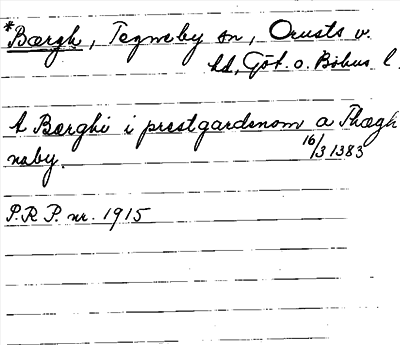 *Bærgh, Tegneby sn, Orusts v.
hd, Göt. o. Bohus l.
A Bærghi i prestgardenom a Thægh
naby. 16/3 1383
P.R.P. nr. 1915